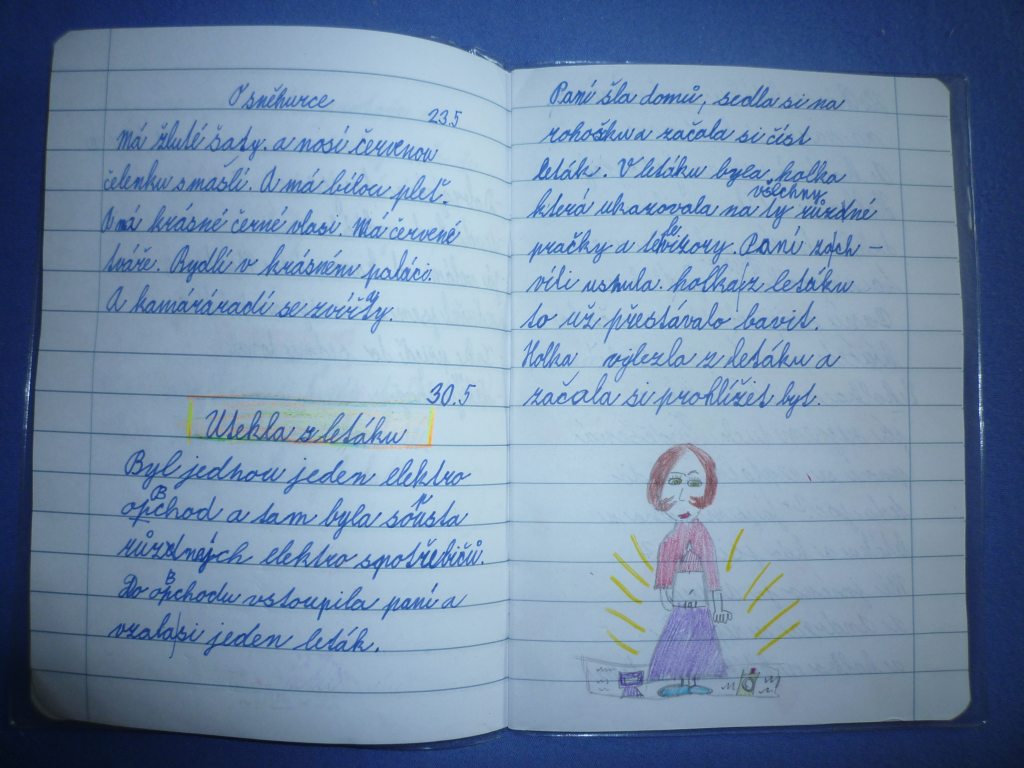 O sněhurce
23.5
Má žluté šaty. a nosí červenou
čelenku s mašlí. A má bílou pleť.
A má krásné černé vlasi. Má červené
tváře. Bydlí v krásném paláci.
A kamáráradí se zvířaty.
30.5
Utekla z letáku
Byl jednou jeden elektro
opBchod a tam byla sousta
různých elektro spotřebičů.
Do opBchodu vstoupila paní a
vzala|si jeden leták.
Paní šla domů, sedla si na
rohošku a začala si číst
leták. V letáku byla holka
všechny
která ukazovala na ty různé
pračky a televizory. Paní zách-
víli usnula. holka|z letáku
to už přestávalo bavit.
Holka vylezla z letáku a
začala si prohlížet byt.